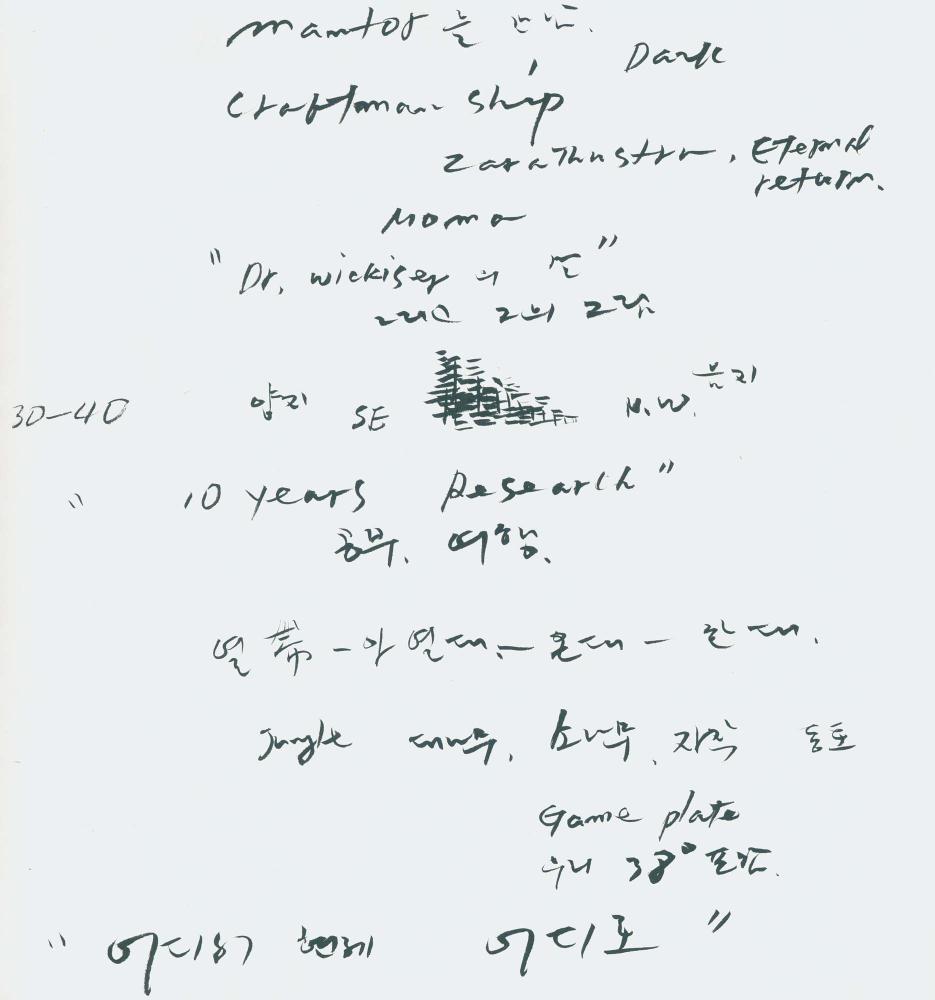 mamtor 를 만남.
Dark
Craftman ship
Zarathustra, Eternal return.
Moma
"Dr. wickiser 의 또"
그리스 그의 그림
30-40 양지 SE N.W. 음지
"10 years Research"
공부, 여행.
열帶-아열대-온대-한대.
Jungle 대나무, 소나무, 자작 동토
Game plate
우리 38°
어디로"